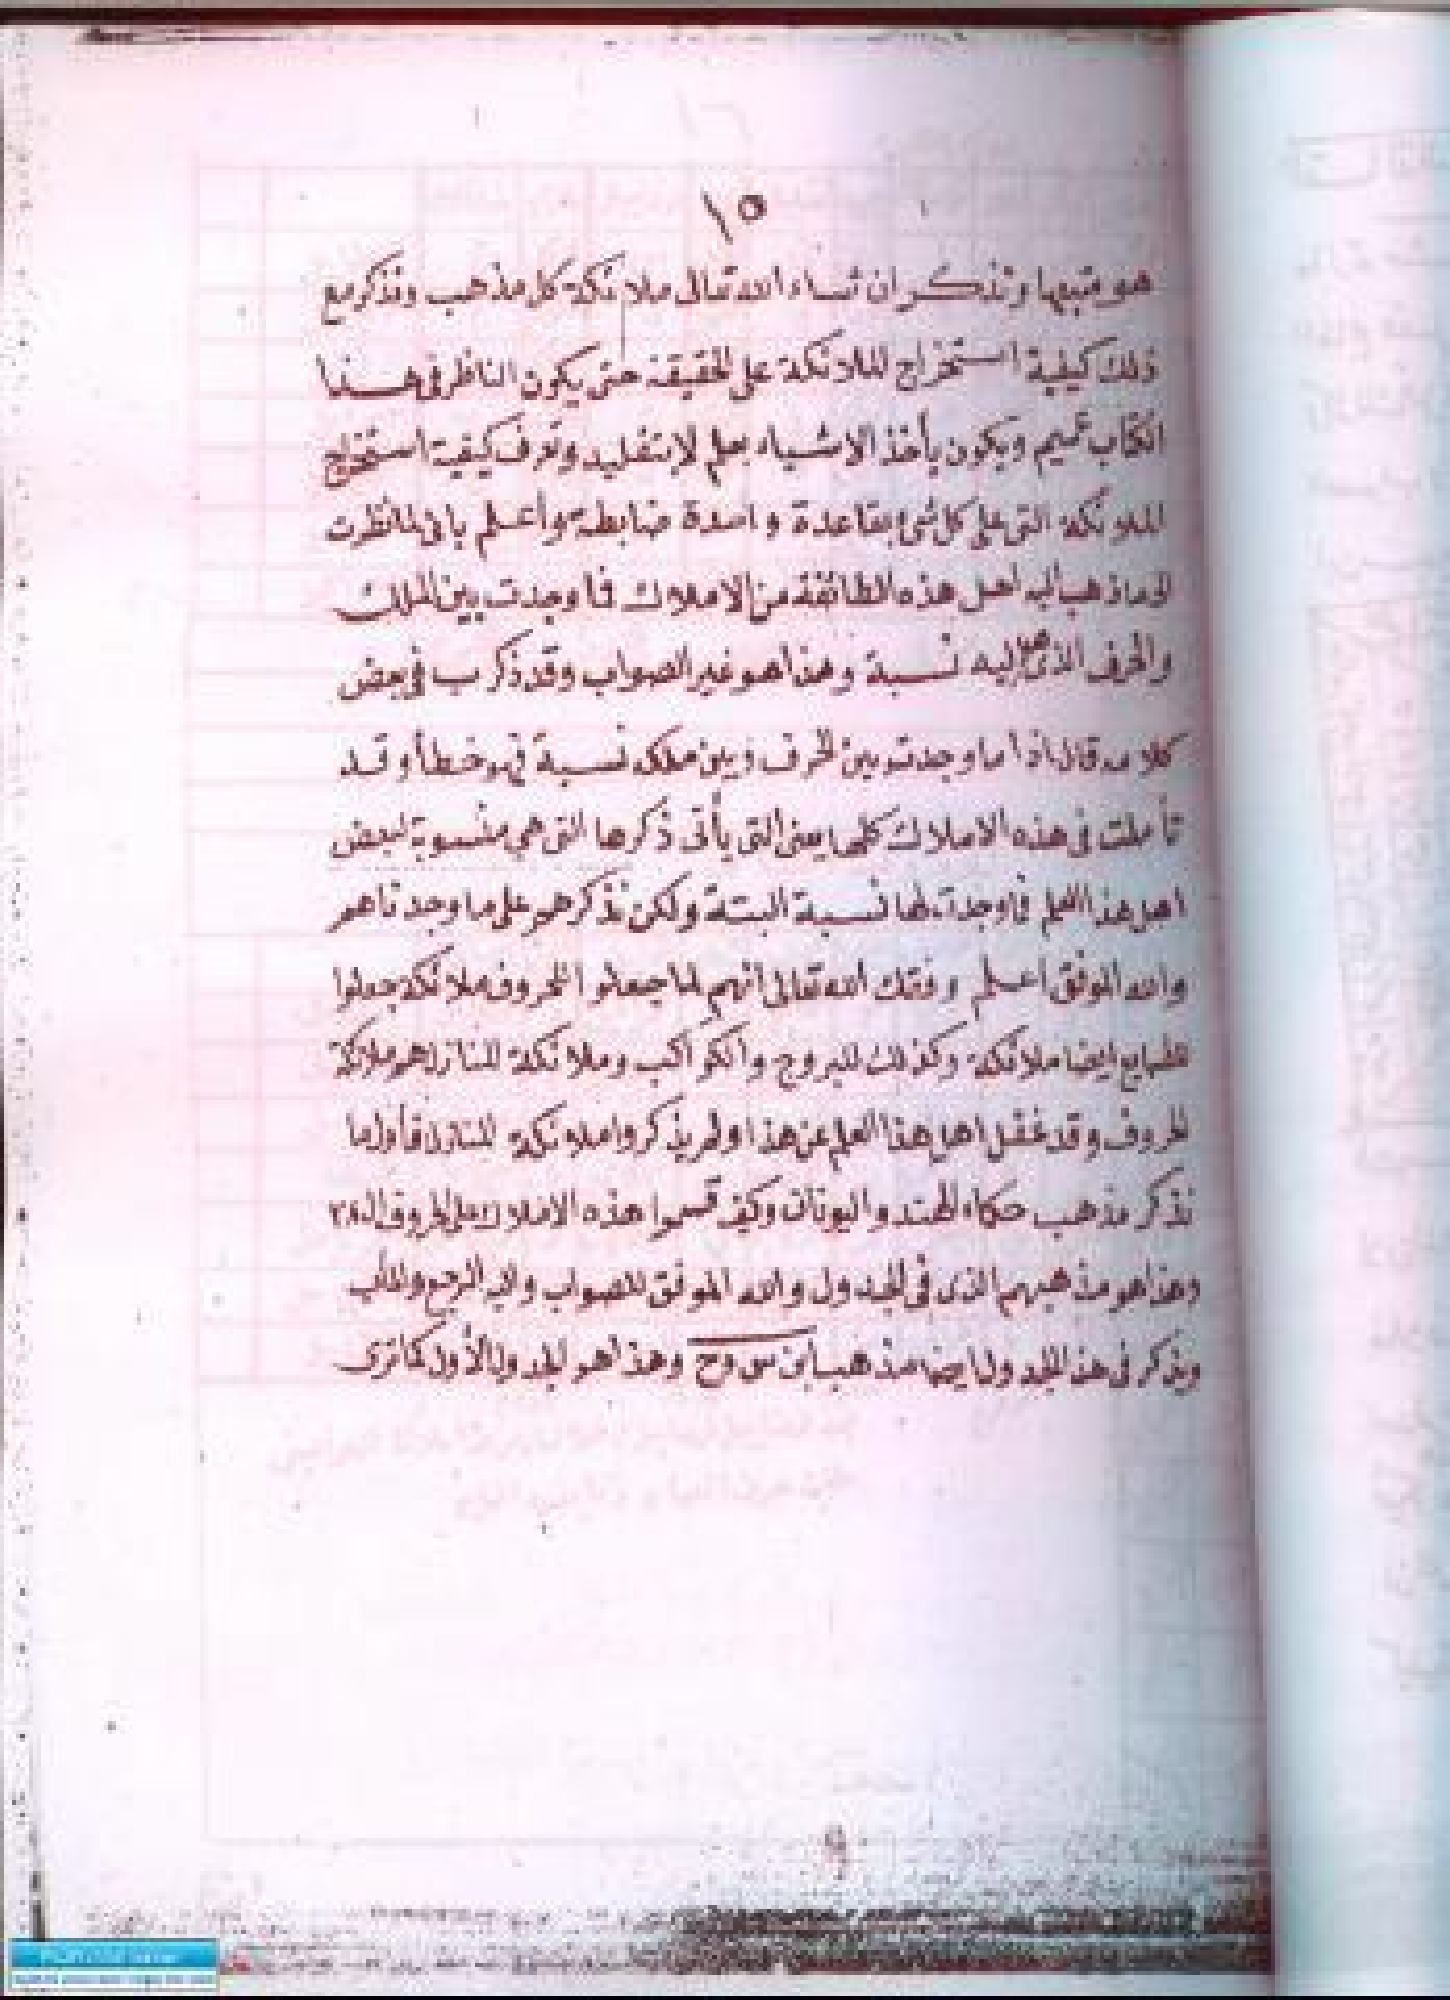 ١٥
هو مبيها ونذكر ان شاء الله تعالى ملائكة كل مذهب ونذكر مع
ذلك كيفية استخراج الملائكة على الحقيقة حتى يكون الناظر في هذا
الكتاب ويكون يأخذ الاشياء بعلم لا بتقليد وتعرف كيفية استخراج
الملائكة التى على كل شئ بقاعدة واحدة ضابطة وأعلم بانى لما نظرت
الى ما ذهب اليه اهل هذه الطائفة من الاملاك فما وجدت بين الملك
والحرف الذى هو اليه نسبة وهذا هو غير الصواب وقد ذكر ب فى بعض
كلامه قال اذا ما وجدت بين الحرف وبين ملكه نسبة فهو خطأ وقد
تأملت فى هذه الاملاك كلها يعنى التى يأتى ذكرها التى هى منسوبة لبعض
اهل هذا العلم فما وجدت لها نسبة البتة ولكن نذكرهم على ما وجدناهم
والله الموفق اعلم وفقك الله تعالى انهم لما جعلوا للحروف ملائكة جعلوا
للطبايع ايضا ملائكة وكذلك للبروج والكواكب وملائكة المنازل هم ملائكة
الحروف وقد غفل اهل هذا العلم عن هذا ولم يذكروا ملائكة المنازل فأول ما
نذكر مذهب حكماء الهند واليونان وكيف قسموا هذه الاملاك على الحروف ال٢٨
وهذا هو مذهبهم الذى فى الجدول والله الموفق للصواب واليه المرجع والمآب
ونذكر فى هذا الجدول ايضا مذهب ابن س وح وهذا هو الجدول الأول كما ترى